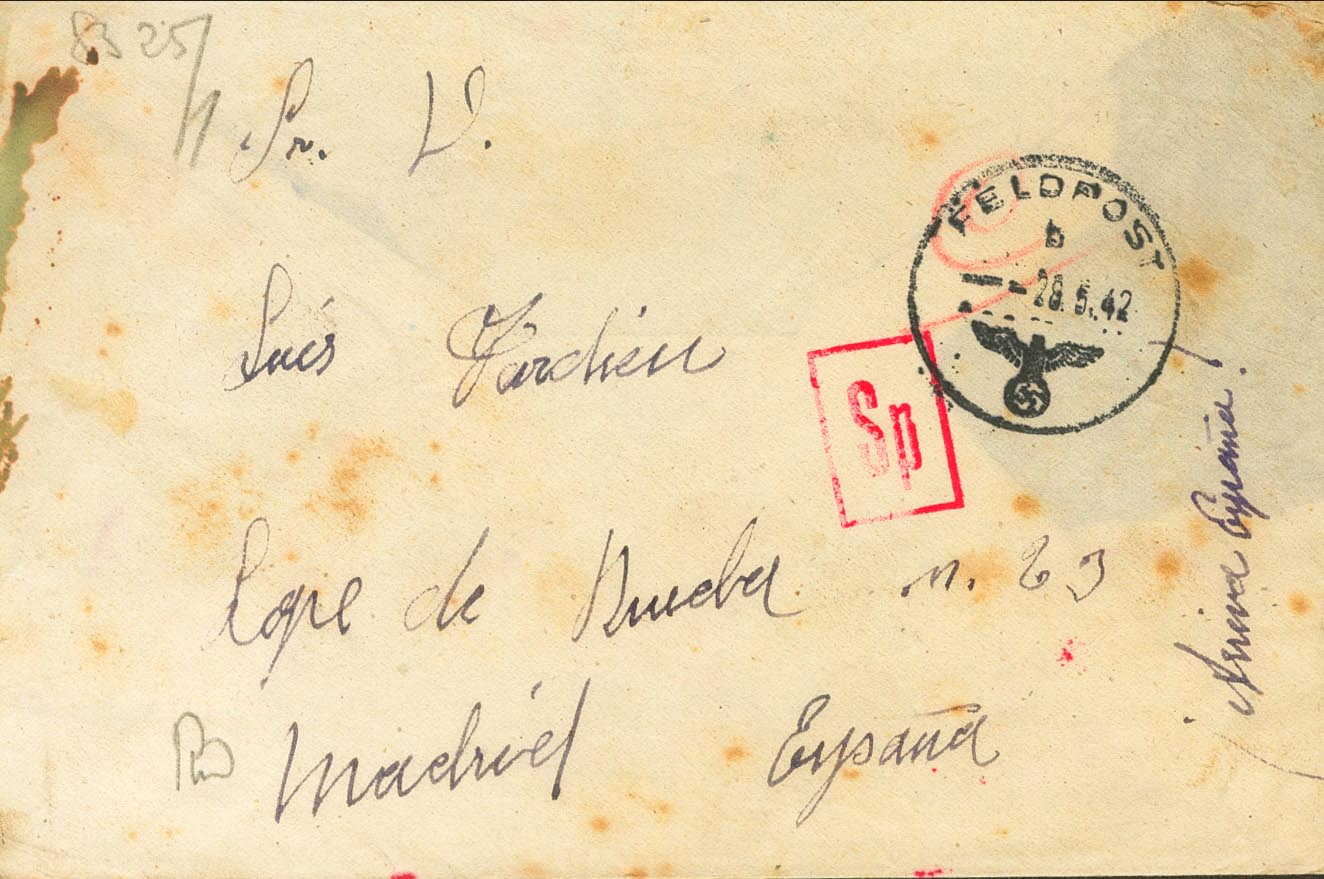 83 25
Sr. D.
FELDPOST
b
-28.5.42
Luis
Sp
Lope de Rueda n. 23
Madrid España
¡Arriva España!